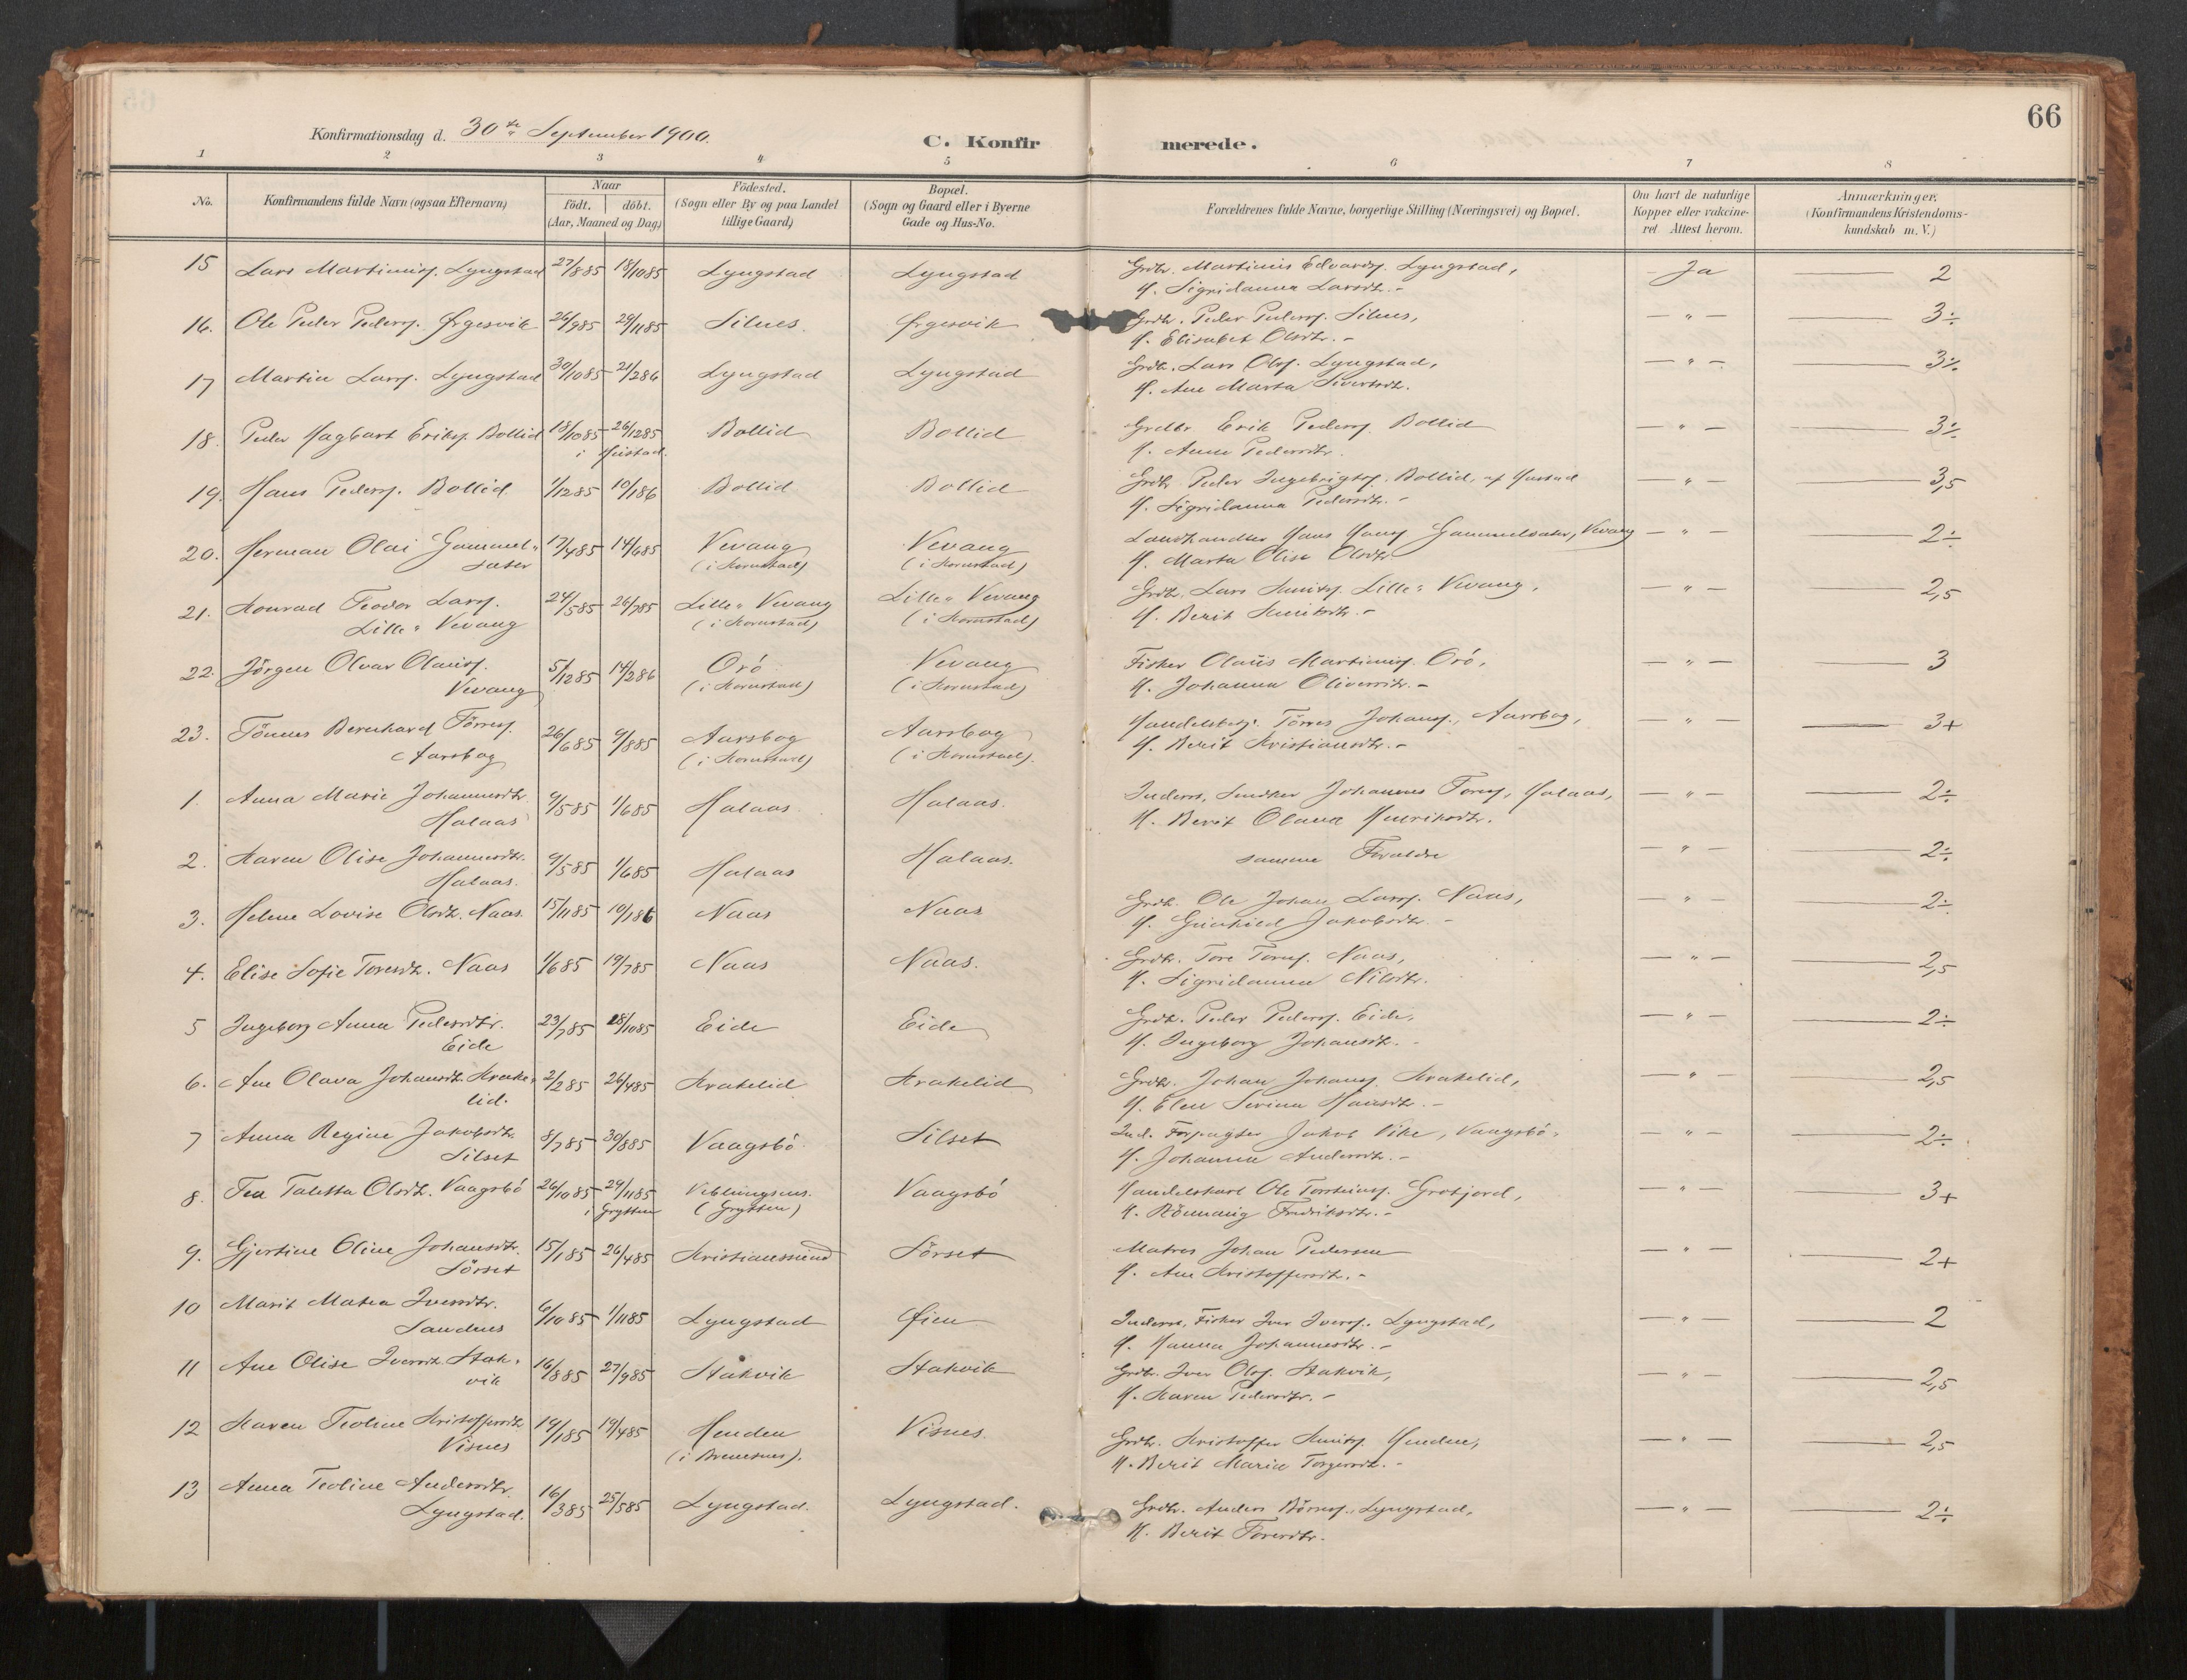 66
Konfirmationsdag d. 30te September 1900.
C. Konfirmerede.
1 2 3 4 5 6 7 8
No.
Konfirmandens fulde Navn (ogsaa Efternavn)
Naar
født. døbt.
(Aar, Maaned og Dag)
Födested.
(Sogn eller By og paa Landet
tillige Gaard)
Bopæl.
(Sogn og Gaard eller i Byerne
Gade og Hus-No.
Forældrenes fulde Navne, borgerlige Stilling (Næringsvei) og Bopæl.
Om havt de naturlige
Kopper eller vakcine-
ret Attest herom.
Anmærkninger.
(Konfirmandens Kristendoms-
kundskab m. V.)
15 Lars Martiniusf. Lyngstad 27/885 18/1085 Lyngstad Lyngstad Grdbr. Martinius Edvardsf. Lyngstad, Ja 2
H. Sigridanna Larsdtr.-
16. Ole Peder Pedersf. Ørgesvik 26/985 29/1185 Silnes Ørgesvik Grdbr. Peder Pedersf. Silnes, — " — 3÷
H. Elisabet Olsdtr.-
17 Martin Larsf. Lyngstad 30/1085 21/286 Lyngstad Lyngstad Grdbr. Lars Olsf. Lyngstad, — " — 3÷
H. Ane Marta Sivertsdtr.
18. Peder Hagbart Eriksf. Bollid 18/1085 26/1285 Bollid Bollid Grdbr. Erik Pedersf. Bollid — " — 3÷
i Hustad. H. Anne Pedersdtr.
19. Hans Pedersf. Bollid 1/1285 10/186 Bollid Bollid Grdbr. Peder Ingebrigtsf. Bollid, af Hustad — " — 3,5
H. Sigridanna Pedersdtr.-
20. Herman Olai Gammel- 17/485 14/685 Vevang Vevang Landhandler Hans Hansf Gammelsæter, Vevang — " — 2÷
sæter (i Kornstad) (i Kornstad) H. Marta Elise Olsdtr
21. Konrad Teodor Larsf. 24/585 26/785 Lille-Vevang Lille-Vevang Grdbr. Lars Knutsf. Lille-Vevang, — " — 2,5
Lille-Vevang (i Kornstad) (i Kornstad) H. Berit Knutsdtr.-
22. Jörgen Olvar Olausf. 5/1285 14/286 Orö Vevang Fisker Olaus Martinusf. Orö, — " — 3
Vevang (i Kornstad) (i Kornstad) H. Johanna Oliversdtr.-
23. Tönnes Bernhard Törresf. 26/685 9/885 Aarsbog Aarsbog Handelsbetj. Törres Johansf., Aarsbog, — " — 3+
Aarsbog (i Kornstad) (i Kornstad). H. Berit Kristiansdtr.-
1. Anna Marie Johannesdtr. 9/585 1/685 Halaas Halaas. Inderst, Snedker Johannes Toresf, Halaas, — " — 2÷
Halaas H. Berit Olava Henriksdtr.
2. Karen Olise Johannesdtr. 9/585 1/685 Halaas Halaas. samme Forældre — " — 2÷
Halaas.
3. Helene Lovise Olsdtr. Naas. 15/1185 10/186 Naas Naas Grdbr. Ole Johan Larsf. Naas, — " — 2÷
H. Gunhild Jakobsdtr.-
4. Elise Sofie Toresdtr. Naas 1/685 19/785 Naas Naas. Grdbr. Tore Toresf. Naas, — " — 2,5
H. Sigridanna Nilsdtr.
5 Ingeborg Anna Pedersdtr. 23/785 18/1085 Eide Eide Grdbr. Peder Pedersf. Eide, — " — 2÷
Eide H. Ingeborg Johansdtr.-
6. Ane Olava Johansdtr. Krake- 2/285 26/485 Krakelid Krakelid Grdbr. Johan Johansf. Krakelid, — " — 2,5
lid. H. Elen Serina Hansdtr.-
7 Anna Regine Jakobsdtr. 8/785 30/885 Vaagsbö Silset Ind. Forpagter Jakob Vike, Vaagsbö. — " — 2÷
Silset H. Johanna Andersdtr.-
8. Tea Taletta Olsdtr. Vaagsbö 26/1085 29/1185 Veblungsnes. Vaagsbö Handelskarl Ole Torsteinsf. Grötjord, — " — 3+
i Grytten (Grytten) H. Rönnaug Fredriksdtr.-
9. Gjertine Oline Johansdtr. 15/185 26/485 Kristianssund Sörset Matros Johan Pedersen — " — 2+
Sörset H. Ane Kristoffersdtr.-
10 Marit Matea Iversdtr. 6/1085 1/1185 Lyngstad Øien Inderst, Fisker Iver Iversf. Lyngstad, — " — 2
Sandnes H. Hanna Johannesdtr.-
11 Ane Olise Iversdtr. Stak- 16/885 27/985 Stakvik Stakvik Grdbr. Iver Olsf. Stakvik, — " — 2,5
vik H. Karen Pedersdtr.-
12 Karen Teoline Kristoffersdtr 14/185 19/485 Henden Visnes. Grdbr. Kristoffer Knutsf. Henden, — " — 2,5
Visnes (i Bremsnes). H. Berit Maria Torgersdtr.-
13 Anna Teoline Andersdtr. 16/385 25/585 Lyngstad. Lyngstad. Grdbr. Anders Börresf. Lyngstad, — " — 2÷
Lyngstad. H. Berit Toresdtr.